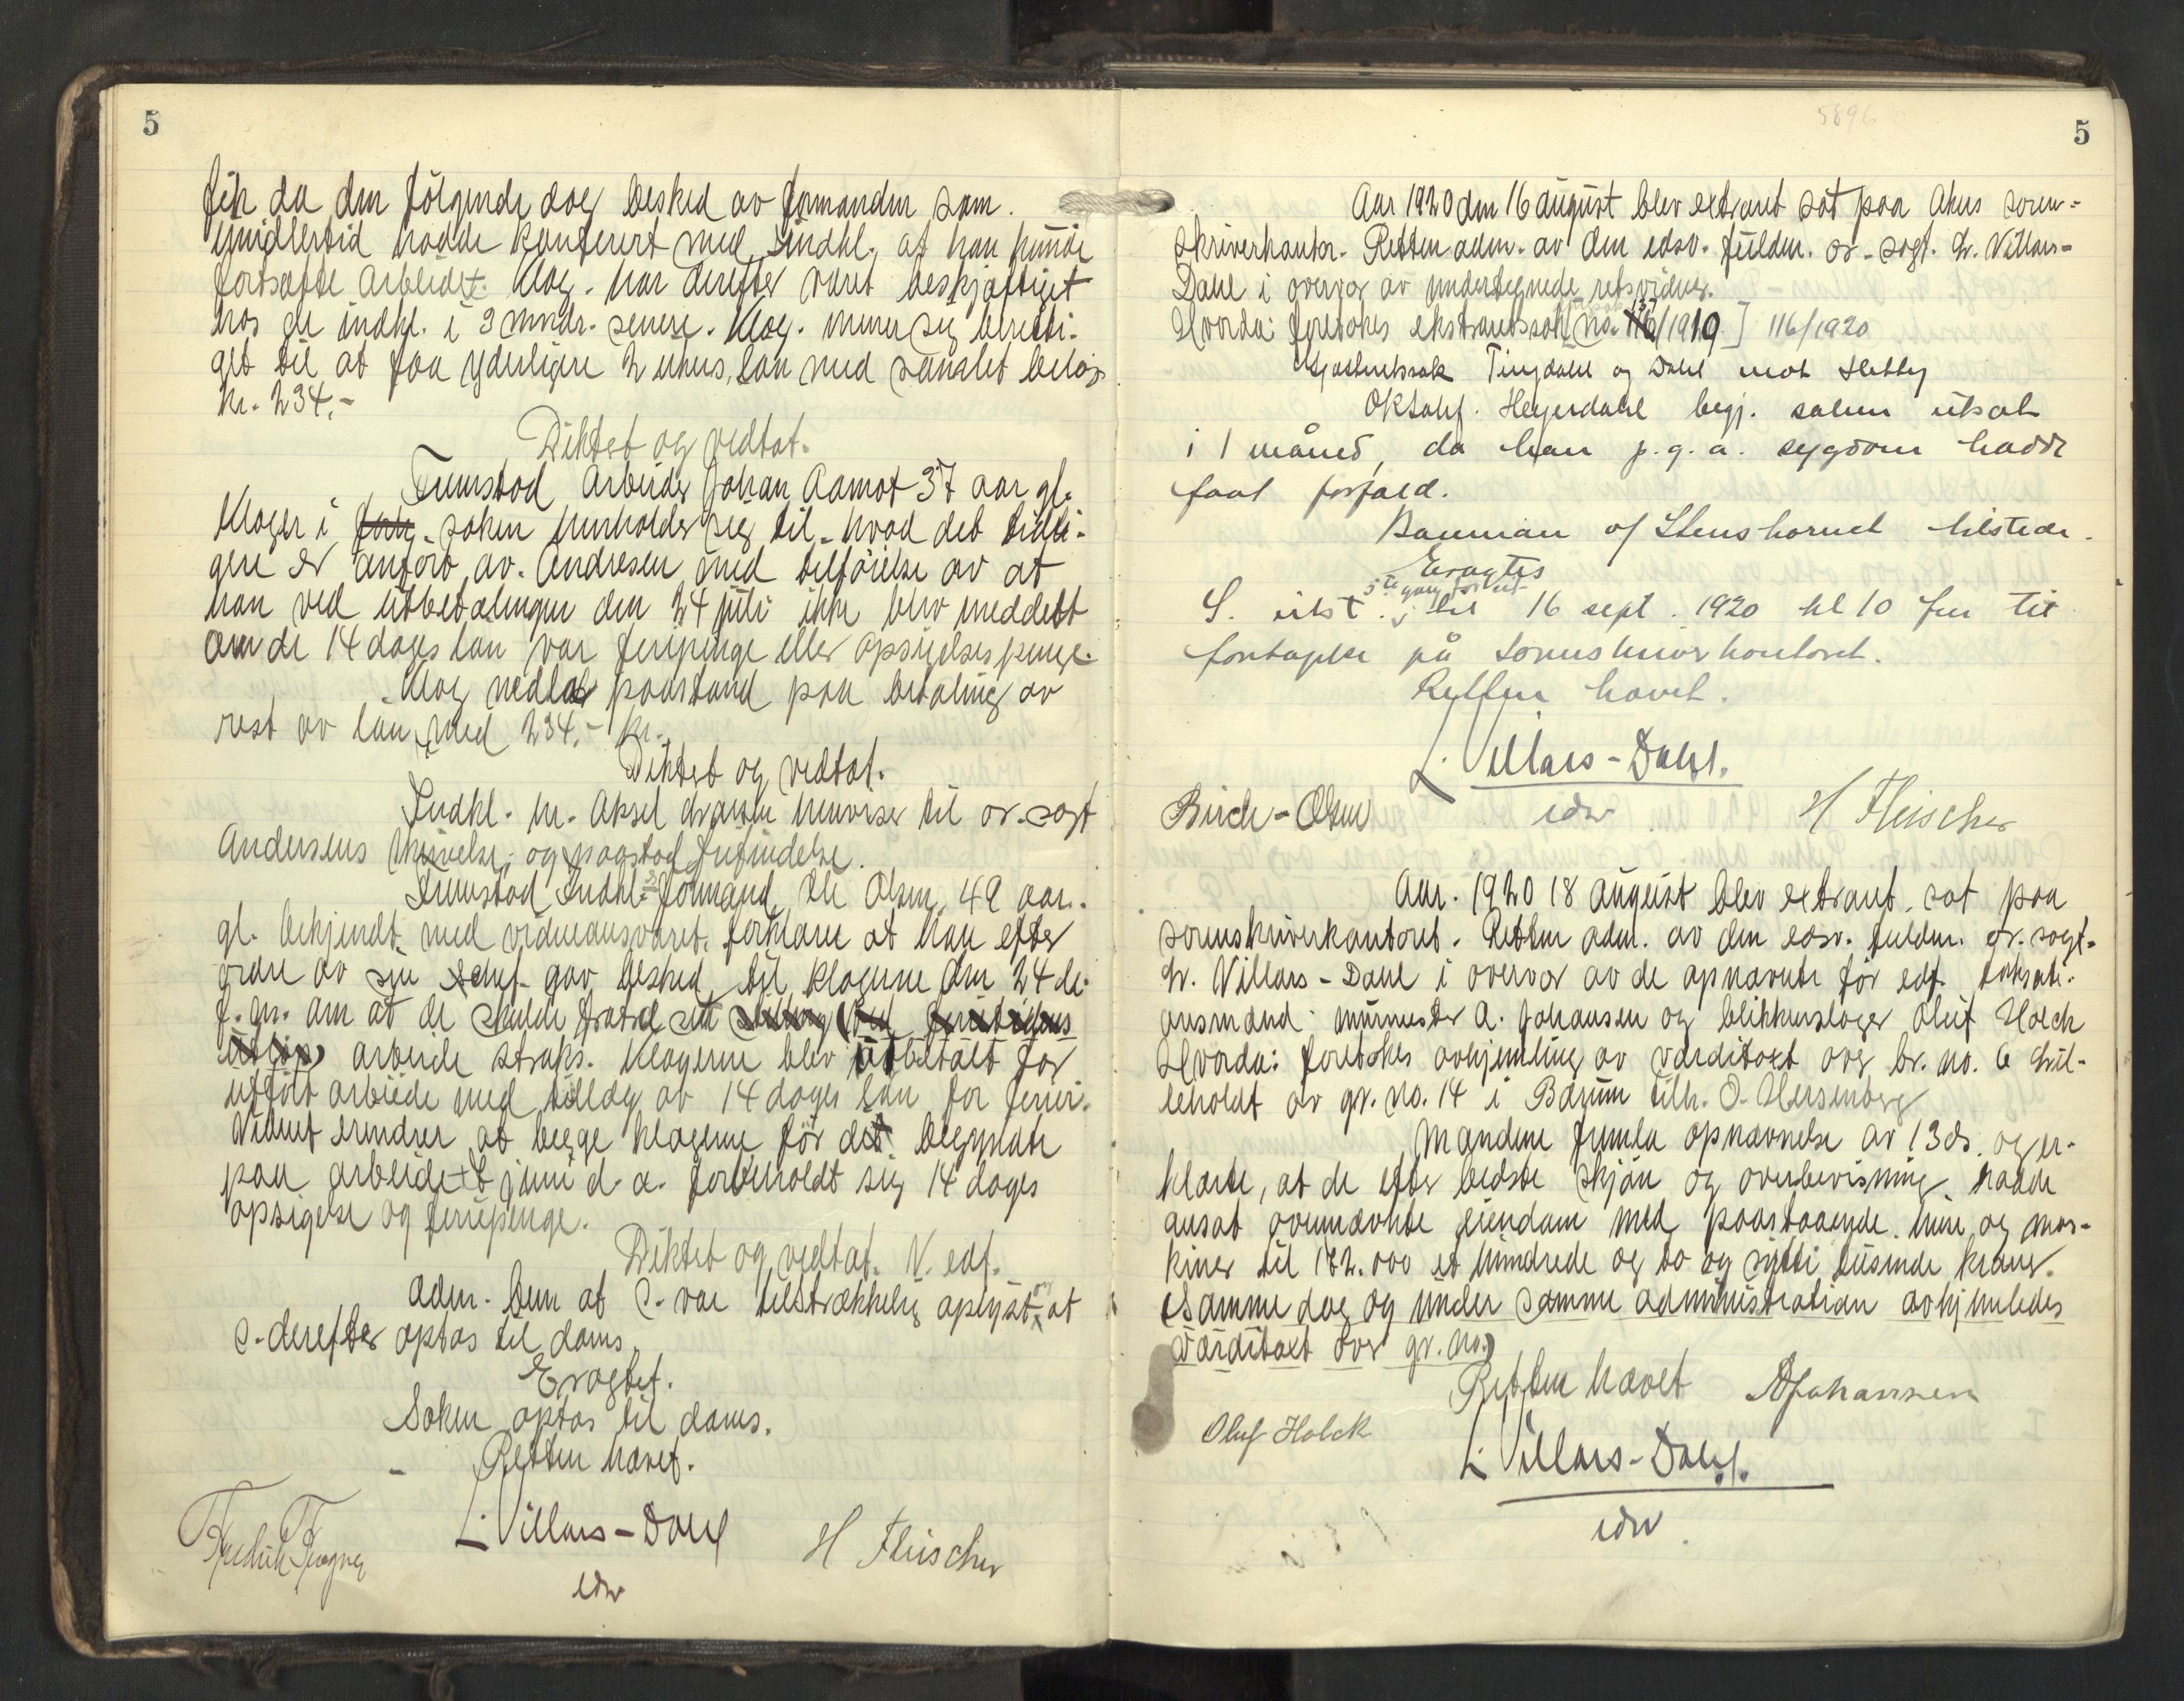 5
fik da den følgende dag besked av formanden som
imidlertid hadde konferert med indkl. at han kunde
fortsætte arbeidet. Klag. har derefter været beskjæftiget
hos de indkl. i 3 mndr. senere. Klag. mener sig beretti-
get til at faa yderligere 2 ukers løn med samlet beløp
kr. 234.-
Diktert og vedtat.
Fremstod Arbeider Johan Aamot 37 aar gl.
Klager i saken henholder sig til hvad det tidli-
gere er anført av Andresen med tilføielse av at
han ved utbetalingen den 24 juli ikke blev meddelt
om de 14 dages løn var feriepenge eller opsigelsespenge.
Klag nedla paastand paa betaling av
rest av løn med 234.- kr.
Diktert og vedtat.
Indkl. hr. Aksel henviser til or. sagf
Andersens skrivelse og paastod frifindelse.
Fremstod Indkl.s formand Ole Olsen, 49 aar.
gl. bekjendt med vidneansvaret. forklarer at han efter
ordre av sin chef gav besked til klagerne den 24 de
f. m. om at de skulde fratræ sit
arbeide straks. Klagerne blev utbetalt for
utført arbeide med tillæg av 14 dages løn for ferier.
Vidnet erindrer at begge klagerne før det begyndte
paa arbeidet i juni d. a. forbeholdt sig 14 dages
opsigelse og feriepenge.
Diktert og vedtat. V. edf.
Adm. bem at S. var tilstrækkelig oplyst og at
S. derefter optas til doms.
Eragtet.
Saken optas til doms.
Retten hævet.
L. Villars-Dahl
edsv
H Fleischer
5896
5
Aar 1920 den 16 august blev extraret sat paa Akers soren-
skriverkontor. Retten adm. av den edsv. fuldm. or. sagf. L. Villars-
Dahl i overvær av undertegnede retsvidner.
Hvorda: foretokes ekstraretssak no. 116/1919] 116/1920
Gjesteretssak Tingdahl og Dahl mot Hebby
ORSahf. Heyerdahl begj. saken utsat
i 1 måned, da han p.g.a. sygdom hadde
faat forfald.
Bauman o/ Stenshornet tilstede.
Eragtes
5te gang forkl.
S. utst. til 16 sept. 1920 kl 10 fm til
fortsættelse på sorenskriverkontoret.
Retten hævet.
L. Villars-Dahl.
Birch-Olsen
edsv
H Fleischer
Aar. 1920 18 august blev extraret sat paa
sorenskriverkontoret. Retten adm. av den edsv. fuldm. or. sagf.
L. Villars-Dahl i overvær av de opnævnte før edf. taksati-
onsmænd: murmester A. Johansen og blikkenslager Oluf Holck
Hvorda: foretokes avhjemling av værditaxt over br. no. 6
av gr. no. 14 i Bærum tilh. O. Hersenberg
Mændene fremla opnævnelse av 13 ds. og er-
klærte, at de efter bedste skjøn og overbevisning hadde
ansat ovennævnte eiendom med paastaaende huse og mas-
kiner til 172.000 et hundrede og to og sytti tusinde kroner.
(Samme dag og under samme administration avhjemledes
værditaxt over gr. no.)
Retten hævet
AJohansen
Oluf Holck
L. Villars-Dahl.
edsv